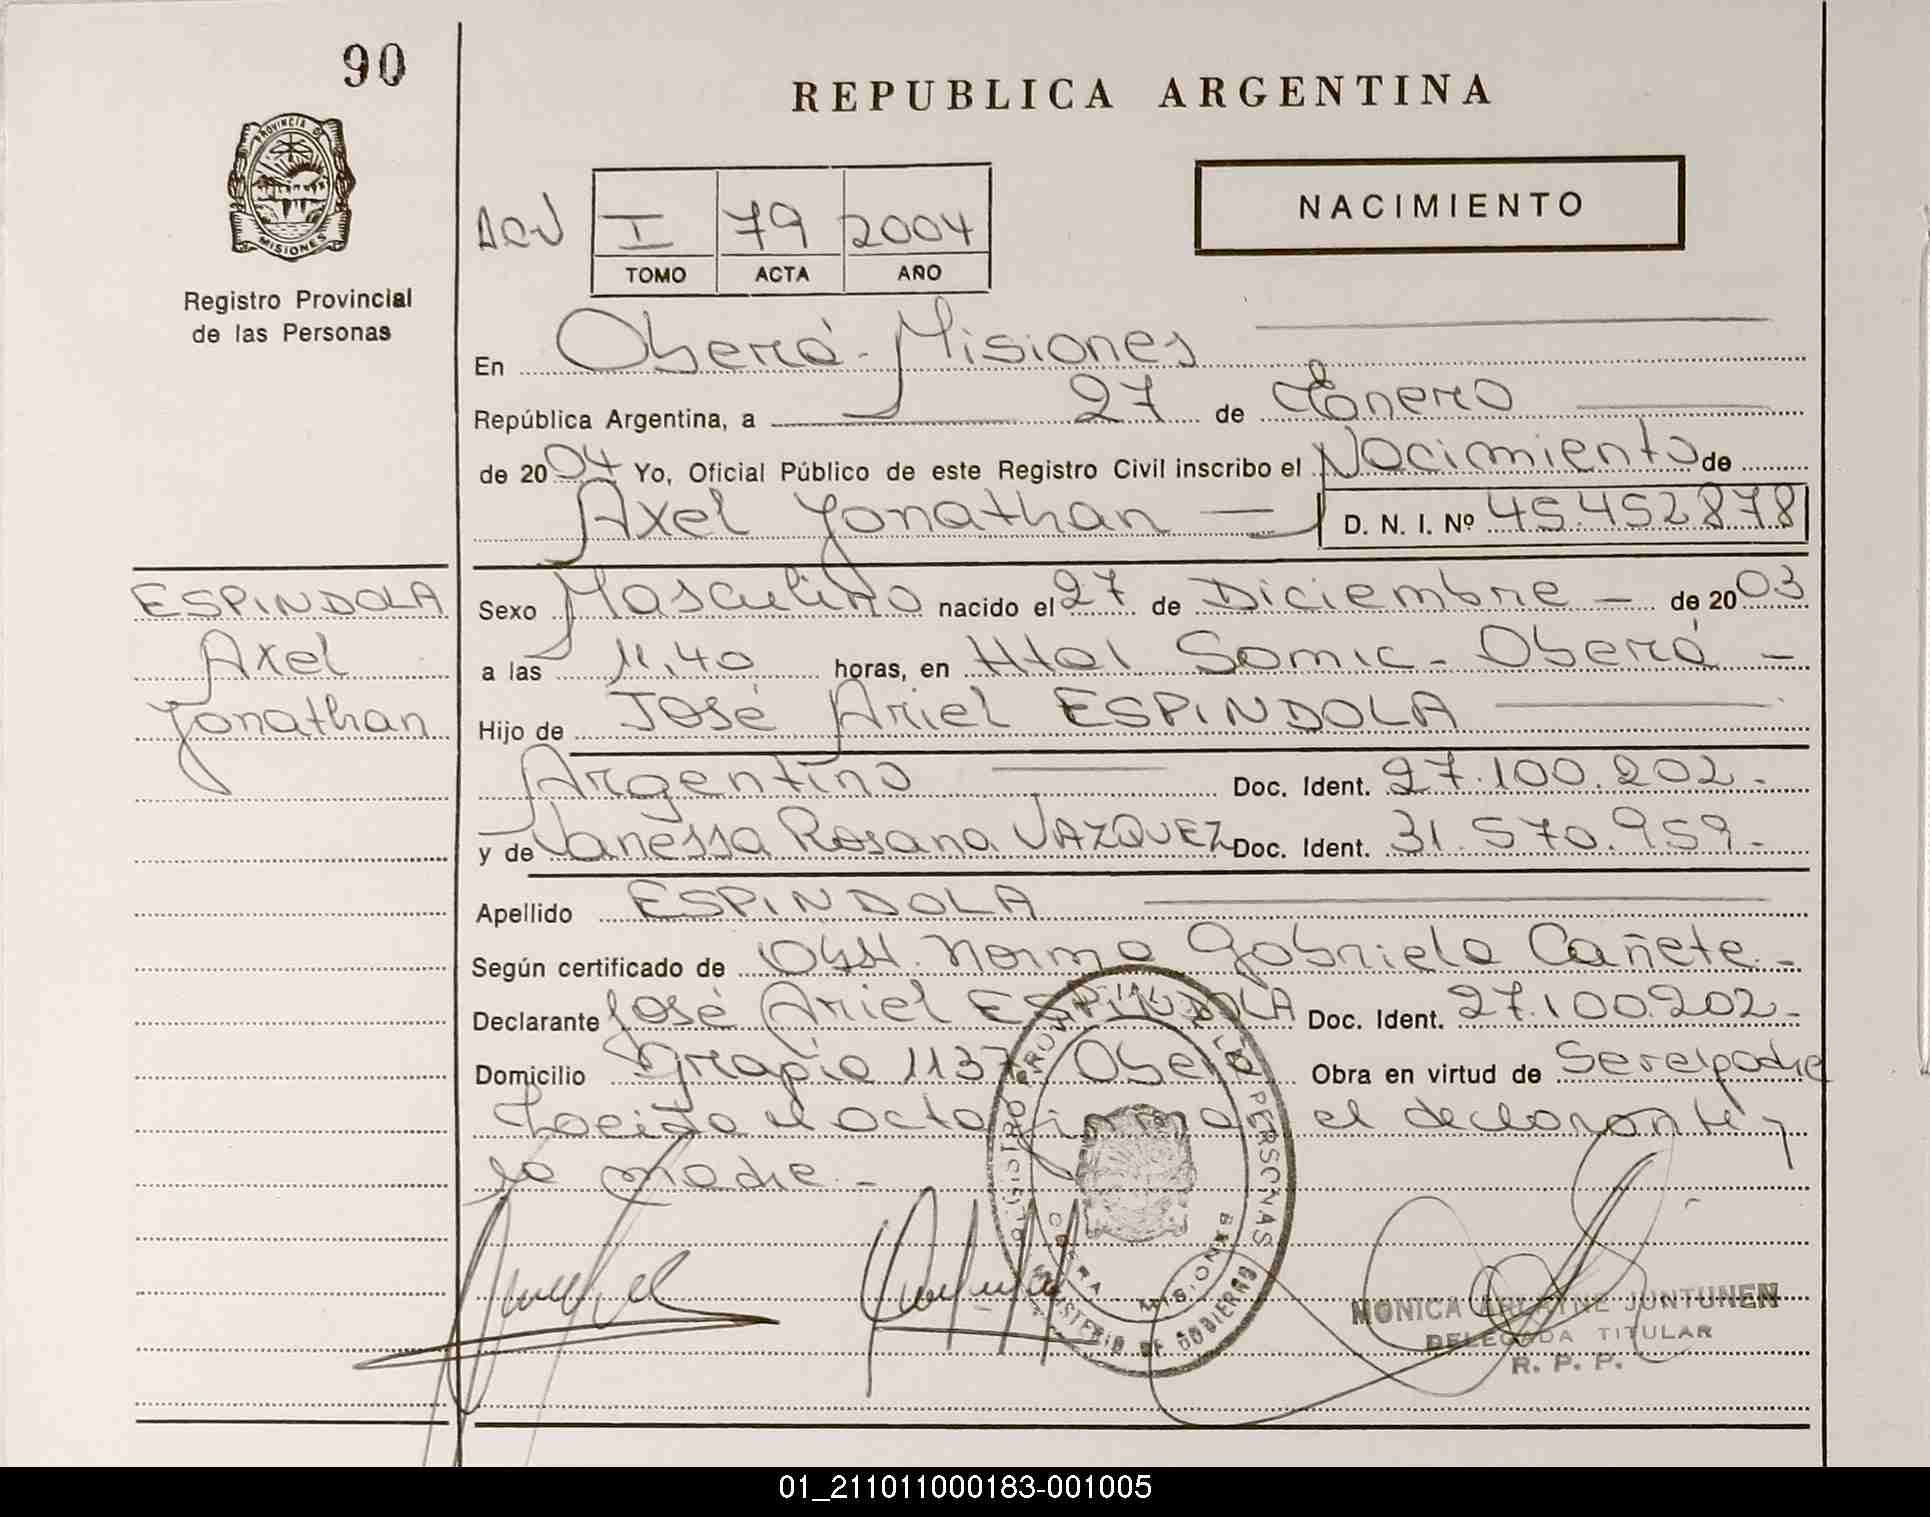 90
REPUBLICA ARGENTINA
PROVINCIA DE
MISIONES
Registro Provincial
de las Personas
NACIMIENTO
I 79 2004
TOMO ACTA AÑO
En Oberá - Misiones
República Argentina, a 27 de Enero
de 2004 Yo, Oficial Público de este Registro Civil inscribo el Nacimiento de
Axel Yonathan D. N. I. Nº 45.452878
ESPINDOLA
Axel
Yonathan
Sexo Masculino nacido el 27 de Diciembre - de 2003
a las 11,40 horas, en Htal Samic - Oberá -
Hijo de José Ariel ESPINDOLA
Argentino Doc. Ident. 27.100.202.-
y de Vanessa Rosana VAZQUEZ Doc. Ident. 31.570.959.-
Apellido ESPINDOLA
Según certificado de Obst. Norma Gabriela Cañete.-
Declarante José Ariel ESPINDOLA Doc. Ident. 27.100.202.-
Domicilio 1137 Oberá Obra en virtud de Ser el padre
Leída el acta firma el declarante y
la madre.-
REGISTRO PROVINCIAL DE LAS PERSONAS
OBERA - MISIONES
MINISTERIO DE GOBIERNO
MONICA ARLAYNE JUNTUNEN
DELEGADA TITULAR
R. P. P.
01_211011000183-001005